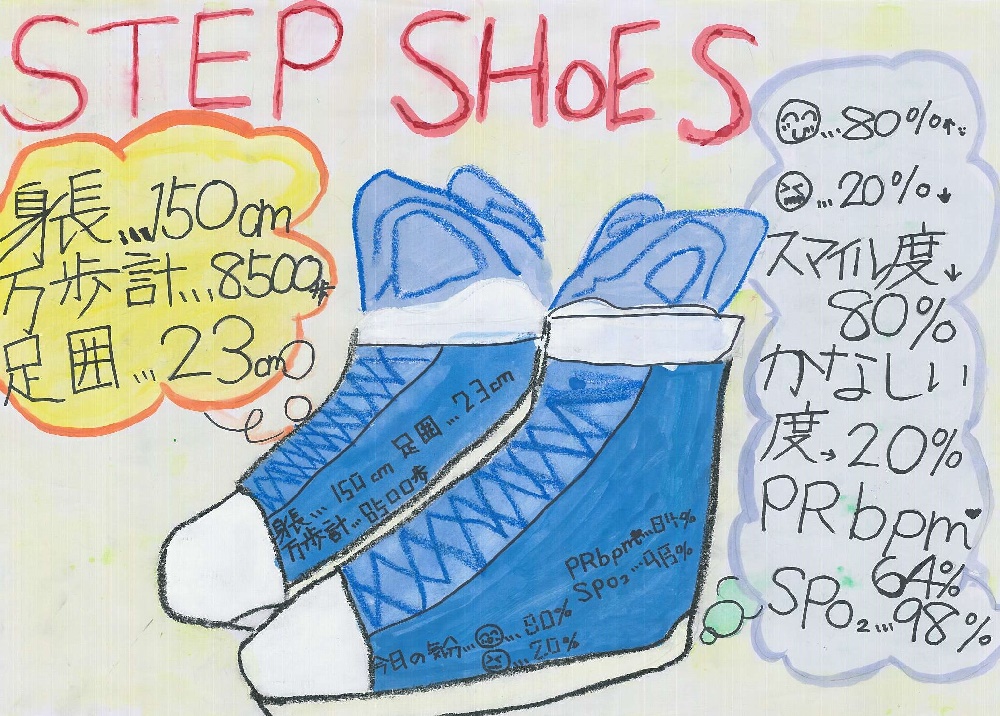 STEP SHOES
身長...150cm
万歩計...8500歩
足囲...23cm
😊...80%↑
😣...20%↓
スマイル度↓
80%
かなしい
度→20%
PRbpm♥
64%
SPO₂...98%
身長...150cm 足囲...23cm
万歩計...8500歩
PRbpm♥...64%
SPO₂...98%
今日の気分...😊...80%
😣...20%